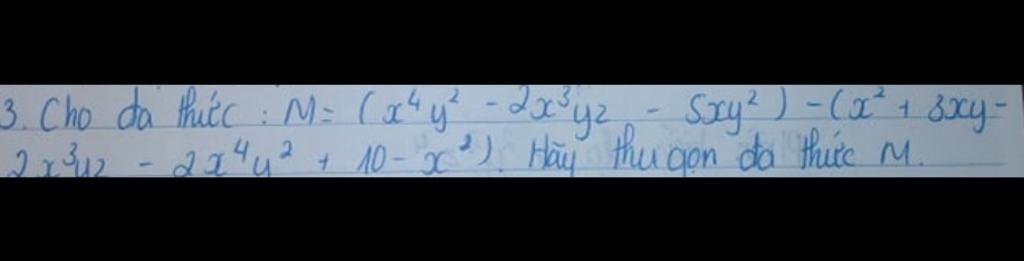 3. Cho đa thức : M = (x⁴y² - 2x³yz - 5xy²) - (x² + 3xy -
2x³yz - 2x⁴y² + 10 - x²). Hãy thu gọn đa thức M.